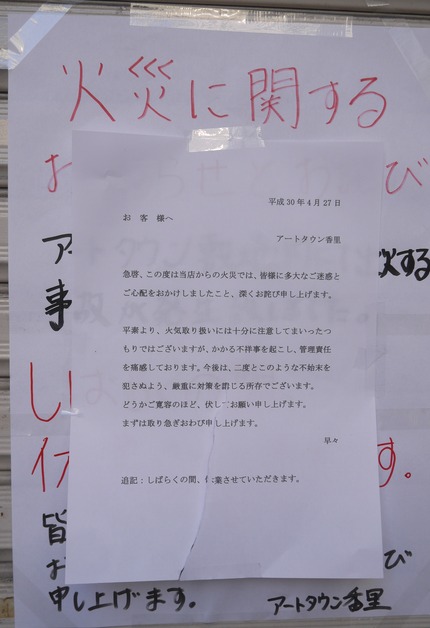 火災に関する
び
平成30年4月27日
お 客 様へ
アートタウン香里
急啓、この度は当店からの火災では、皆様に多大なご迷惑と
ご心配をおかけしましたこと、深くお詫び申し上げます。
平素より、火気取り扱いには十分に注意してまいったつ
もりではございますが、かかる不祥事を起こし、管理責任
を痛感しております。今後は、二度とこのような不始末を
犯さぬよう、厳重に対策を講じる所存でございます。
どうかご寛容のほど、伏してお願い申し上げます。
まずは取り急ぎおわび申し上げます。
早々
追記:しばらくの間、休業させていただきます。
事
す。
皆
び
申し上げます。 アートタウン香里